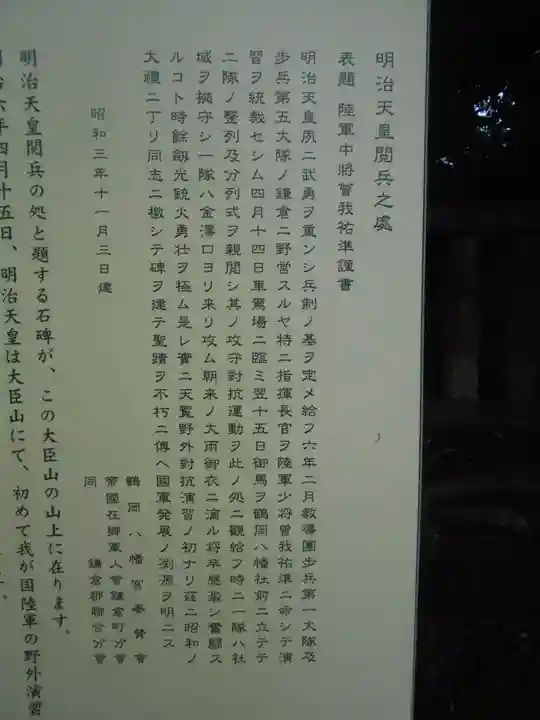 明治天皇閲兵之處
表題 陸軍中將曾我祐準謹書
明治天皇夙ニ武勇ヲ重ンシ兵制ノ基ヲ定メ給フ六年二月教導團歩兵第一大隊及
歩兵第五大隊ノ鎌倉ニ野営スルヤ特ニ指揮長官ヲ陸軍少将曾我祐準ニ命シテ演
習ヲ統裁セシム四月十四日車駕場ニ臨ミ翌十五日御馬ヲ鶴岡八幡社前ニ立テテ
二隊ノ整列及分列式ヲ親閲シ其ノ攻守對抗運動ヲ此ノ処ニ觀給フ時ニ一隊ハ社
域ヲ扼守シ一隊ハ金澤口ヨリ来リ攻ム朝来ノ大雨御衣ニ滴ル将卒感激シ奮闘ス
ルコト時餘劔光銃火勇壮ヲ極ム是レ實ニ天覧野外對抗演習ノ初ナリ茲ニ昭和ノ
大禮ニ丁リ同志ニ檄シテ碑ヲ建テ聖蹟ヲ不朽ニ傳ヘ國軍発展ノ淵源ヲ明ニス
昭和三年十一月三日建
鶴岡八幡宮奉賛會
帝國在郷軍人會鎌倉町分會
同 鎌倉郡聯合分會
明治天皇閲兵の処と題する石碑が、この大臣山の山上に在ります。
治六年四月十五日、明治天皇は大臣山にて、初めて我が国陸軍の野外演習